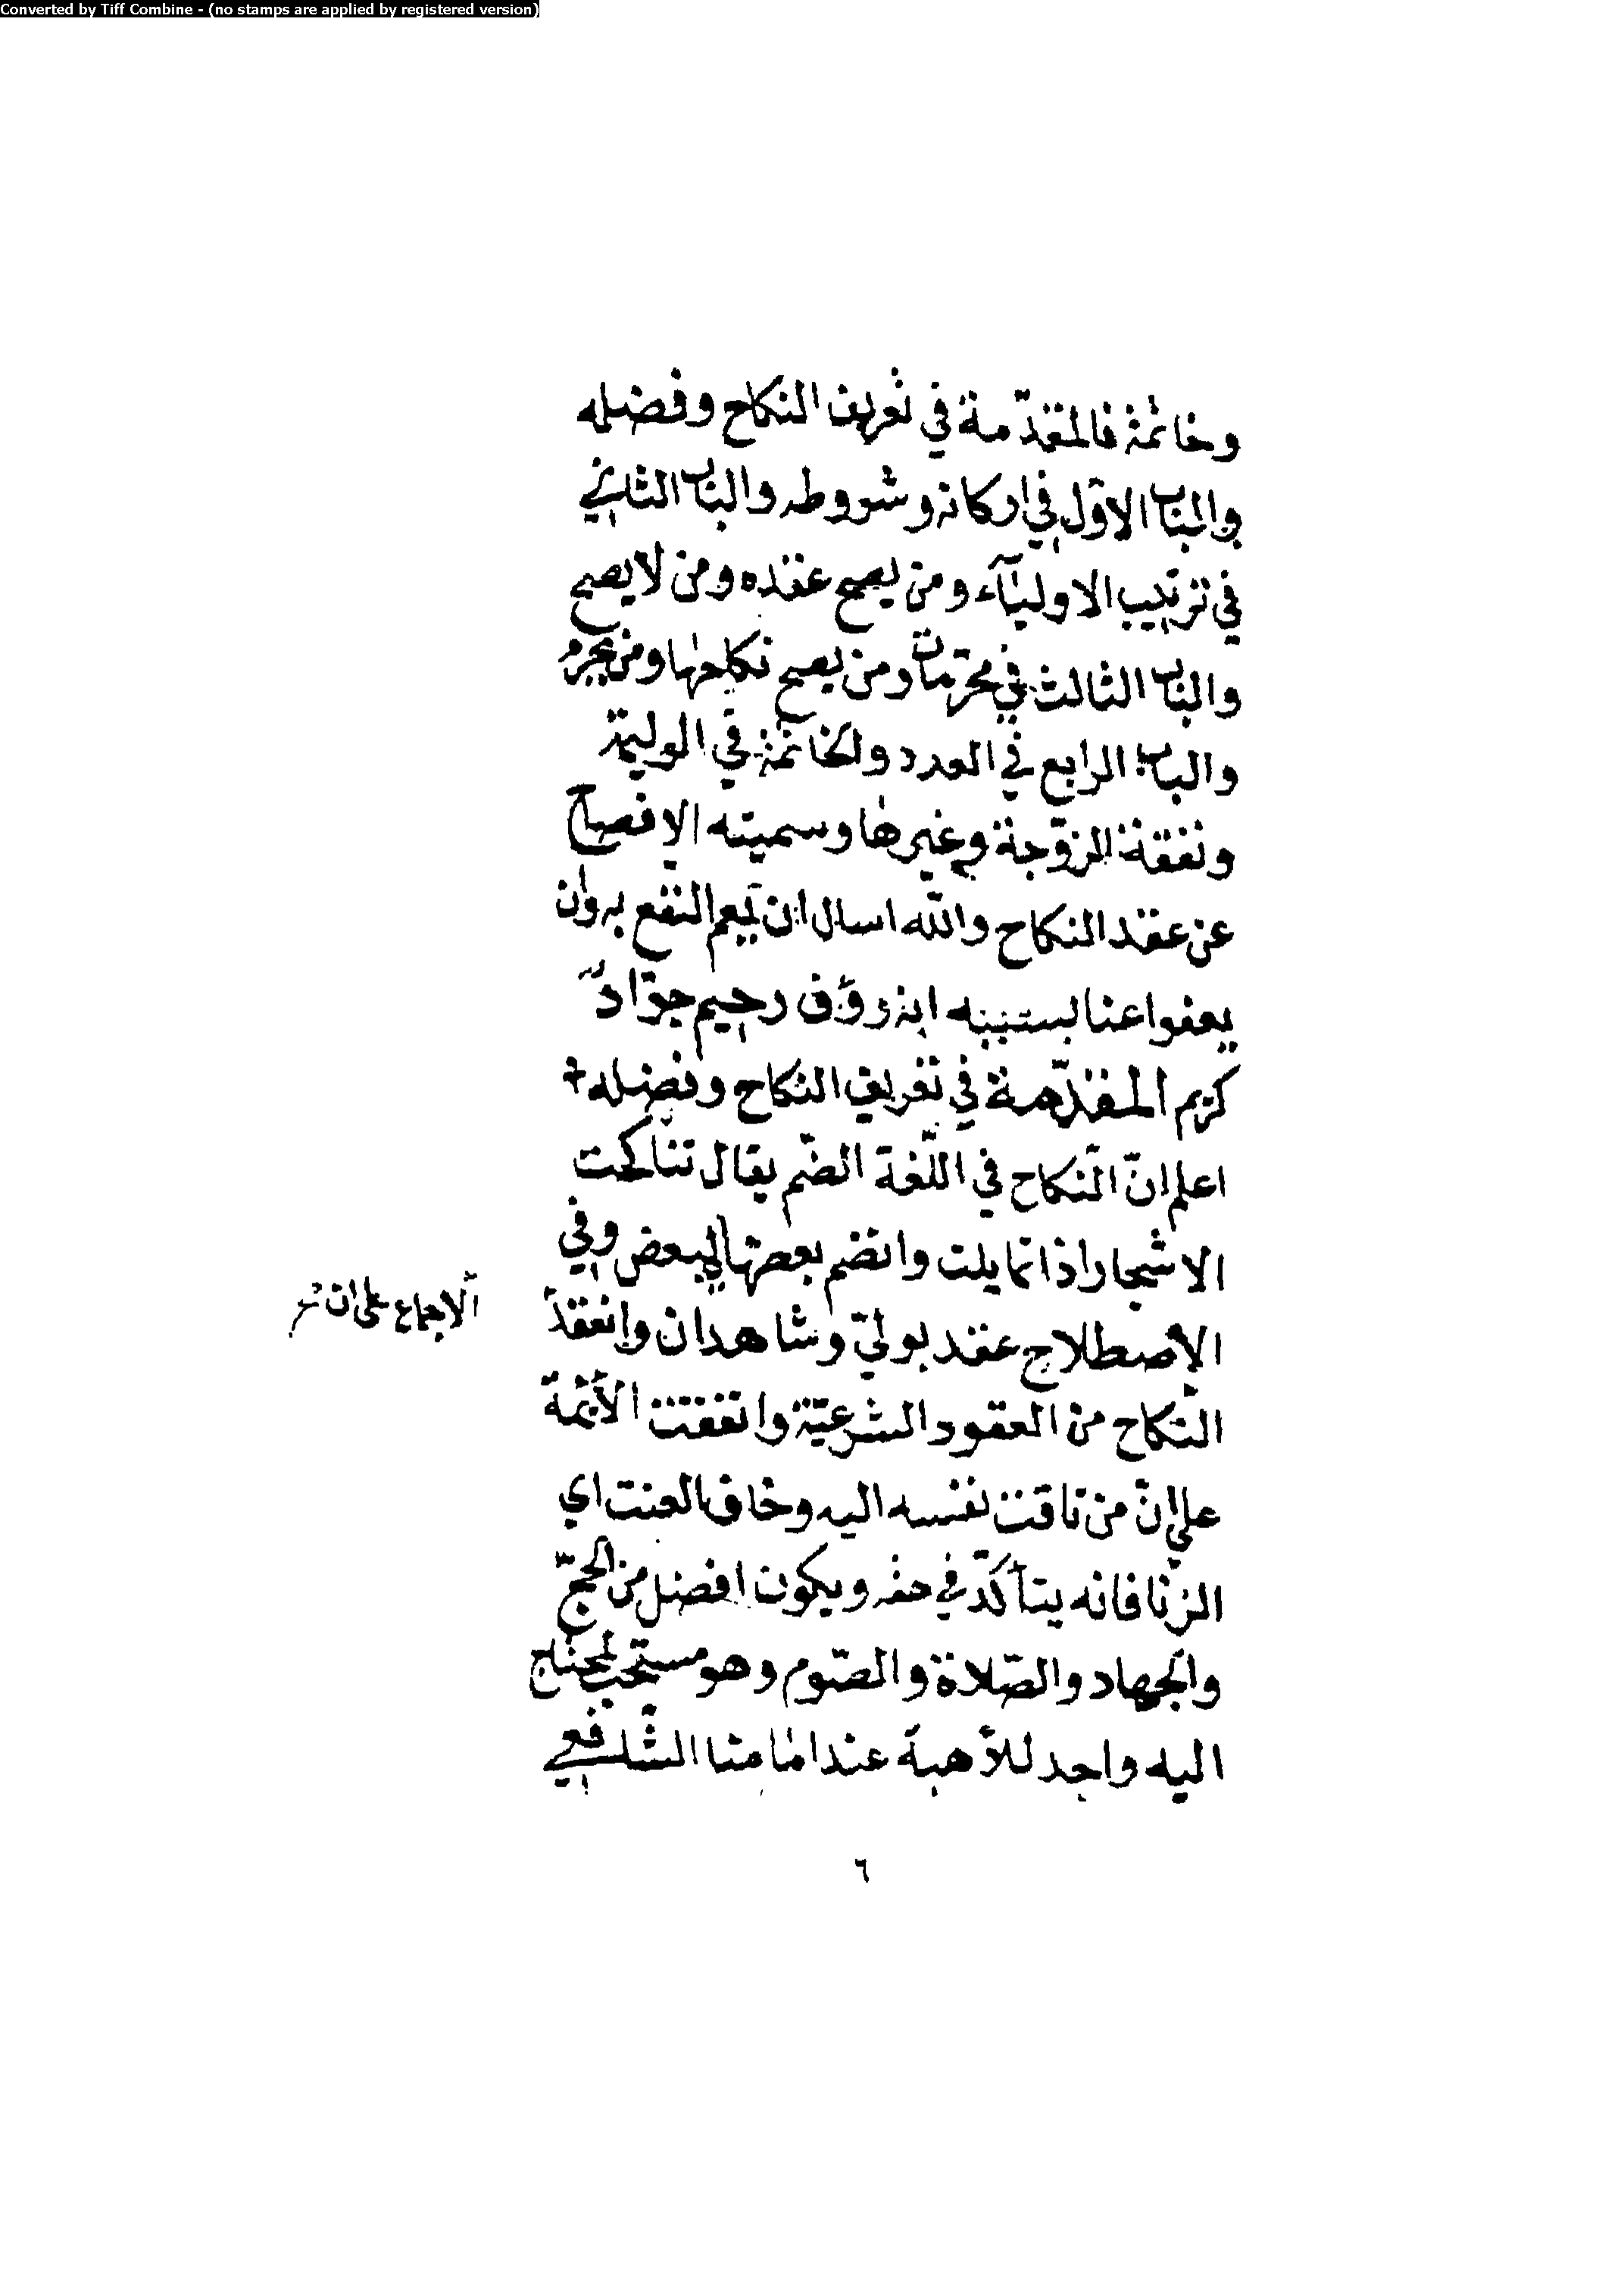 Converted by Tiff Combine - (no stamps are applied by registered version)
وخاتمة فالمقدّمة في تعريف النكاح وفضله
والباب الاوّل في اركانه وشروطه والباب الثاني
في ترتيب الاوليآء ومن يصح عقده ومن لا يصح
والباب الثالث في محرّمات ومن يصح نكاحها ومن يحرم
والباب الرابع في العدد والخاتمة في الوليمة
ونفقة الزوّجة وغيرها وسميته الافصاح
عن عقد النكاح والله اسال ان يعم النفع به وان
يعفوا عنا بسببه انه رؤف رحيم جوّادٌ
كريم المقدّمة في تعريف النكاح وفضله
اعلم انّ النّكاح في اللّغة الضّم يقال تناكحت
الاشجار اذا تمايلت وانضم بعضها لبعض وفي
الاصطلاح عقد بوليّ وشاهدان وانعقد
الاجماع على ان
النّكاح من العقود الشرعيّة واتفقت الأئمة
على انّ من تاقت نفسه اليه وخاف العنت اي
الزّنا فانه يتأكّد في حقه ويكون افضل من الحجّ
والجهاد والصّلاة والصّوم وهو مستحب لمحتاج
اليه واجد للأهبة عند امامنا الشافعي
٦